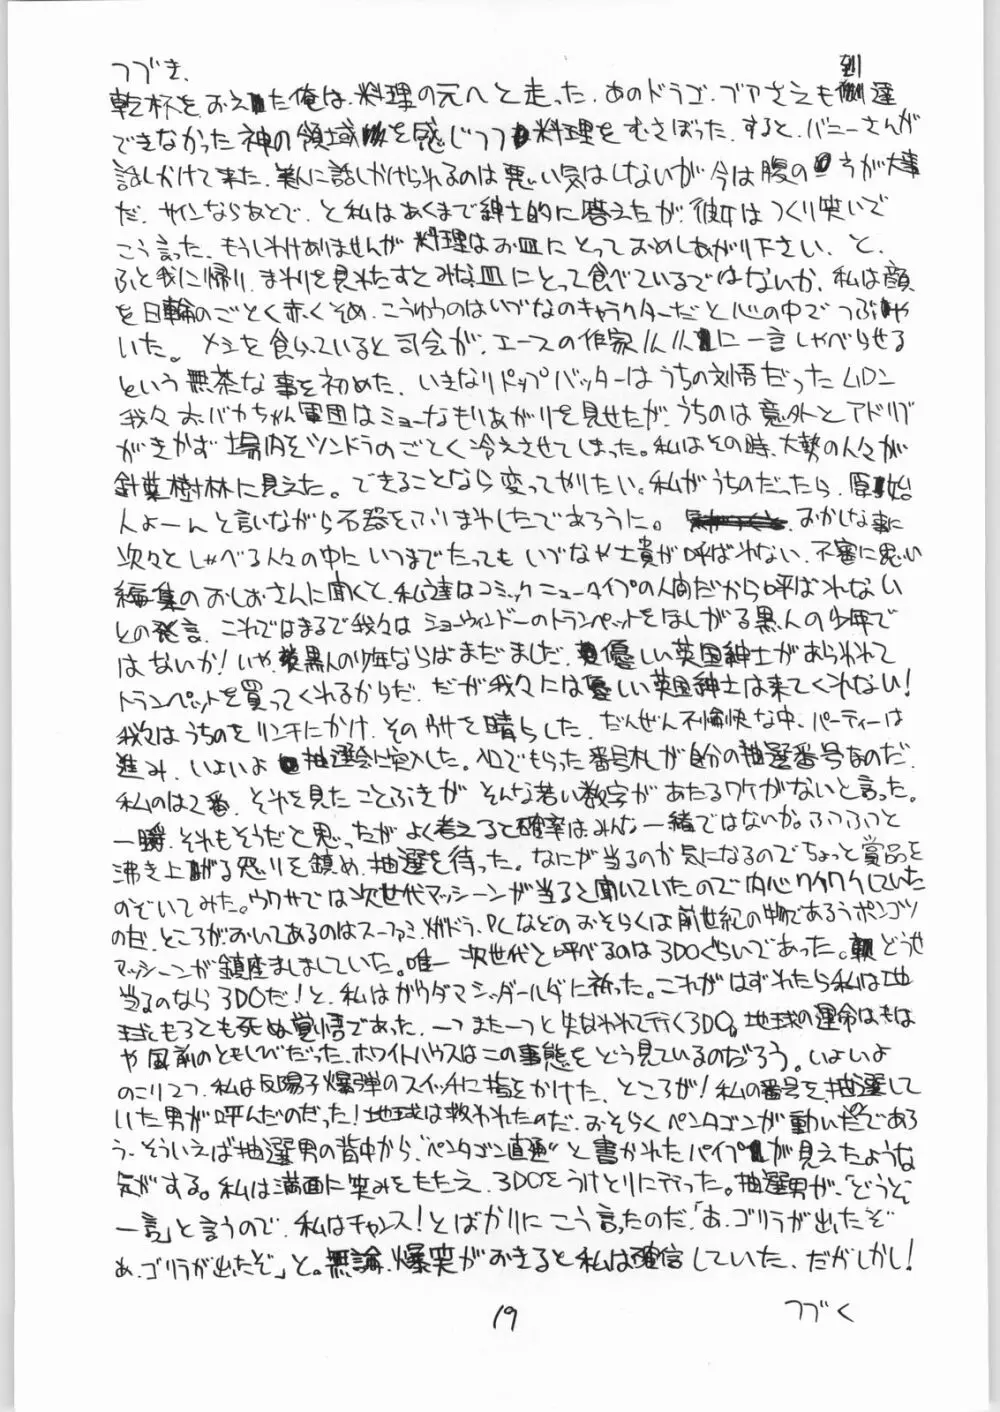 つづき.
乾杯をおえた俺は.料理の元へと走った.あのドラゴ.ブアさえも到達
できなかった神の領域を感じつつ料理をむさぼった.すると.バニーさんが
話しかけて来た.美人に話しかけられるのは悪い気はしないが今は腹のほうが大事
だ.サインならあとで.と私はあくまで紳士的に答えたが.彼女はつくり笑いで
こう言った.もうしわけありませんが料理はお皿にとっておめしあがり下さい.と.
ふと我に帰り.まわりを見わたすとみな皿にとって食べているではないか.私は顔
を日輪のごとく赤くそめ.こうゆうのはいづなのキャラクターだと心の中でつぶや
いた。メシを食らっていると司会が.エースの作家に一言しゃべらせる
という無茶な事を初めた.いきなりトップバッターはうちの刘悟だった
我々おバカちゃん軍団はミョーなもりあがりを見せたが.うちのは意外とアドリブ
がきかず場内をツンドラのごとく冷えさせてしまった。私はその時.大勢の人々が
針葉樹林に見えた。できることなら変ってやりたい。私がうちのだったら.原始
人よーんと言いながら石器をふりまわしたであろうに。おかしな事に
次々としゃべる人々の中にいつまでたってもいづなや士貴が呼ばれない.不審に思い
編集のおしおさんに聞くと.私達はコミックニュータイプの人間だから呼ばれない
との発言.これではまるで我々はショーウィンドーのトランペットをほしがる黒人の少年で
はないか!いや.黒人の少年ならばまだましだ.優しい英国紳士があらわれて
トランペットを買ってくれるからだ.だが我々には優しい英国紳士は来てくれない!
我々はうちのをリンチにかけ.そのウサを晴らした.だんぜん不愉快な中.パーティーは
進み.いよいよ抽選会に突入した。入口でもらった番号札が自分の抽選番号なのだ.
私のは2番.それを見たことぶきがそんな若い数字があたるワケがないと言った。
一瞬.それもそうだと思ったがよく考えると確率はみんな一緒ではないか。ふつふつと
沸き上がる怒りを鎮め.抽選を待った。なにが当るのか気になるのでちょっと賞品を
のぞいてみた。ウワサでは次世代マッシーンが当ると聞いていたので内心ワクワクしていた
のだ.ところがおいてあるのはスーファミ.メガドラ.PCなどのおそらくは前世紀の物であろうポンコツ
マッシーンが鎮座ましましていた。唯一次世代と呼べるのは3DOぐらいであった。どうせ
当るのなら3DOだ!と.私はガウダマシッダールダに祈った。これがはずれたら私は地
球もろとも死ぬ覚悟であった.一つまた一つと失われて行く3DO。地球の運命はもは
や風前のともしびだった.ホワイトハウスはこの事態をどう見ているのだろう。いよいよ
のこり2つ.私は反陽子爆弾のスイッチに指をかけた.ところが!私の番号を.抽選して
いた男が呼んだのだった!地球は救われたのだ.おそらくペンタゴンが動いたのであろ
う.そういえば抽選男の背中から.“ペンタゴン直通”と書かれたパイプが見えたような
気がする。私は満面に笑みをたたえ.3DOをうけとりに行った。抽選男が.「どうぞ
一言」と言うので.私はチャンス!とばかりにこう言ったのだ.「あ.ゴリラが出たぞ
あ.ゴリラが出たぞ」と。無論.爆笑がおきると私は確信していた.だがしかし!
つづく
19